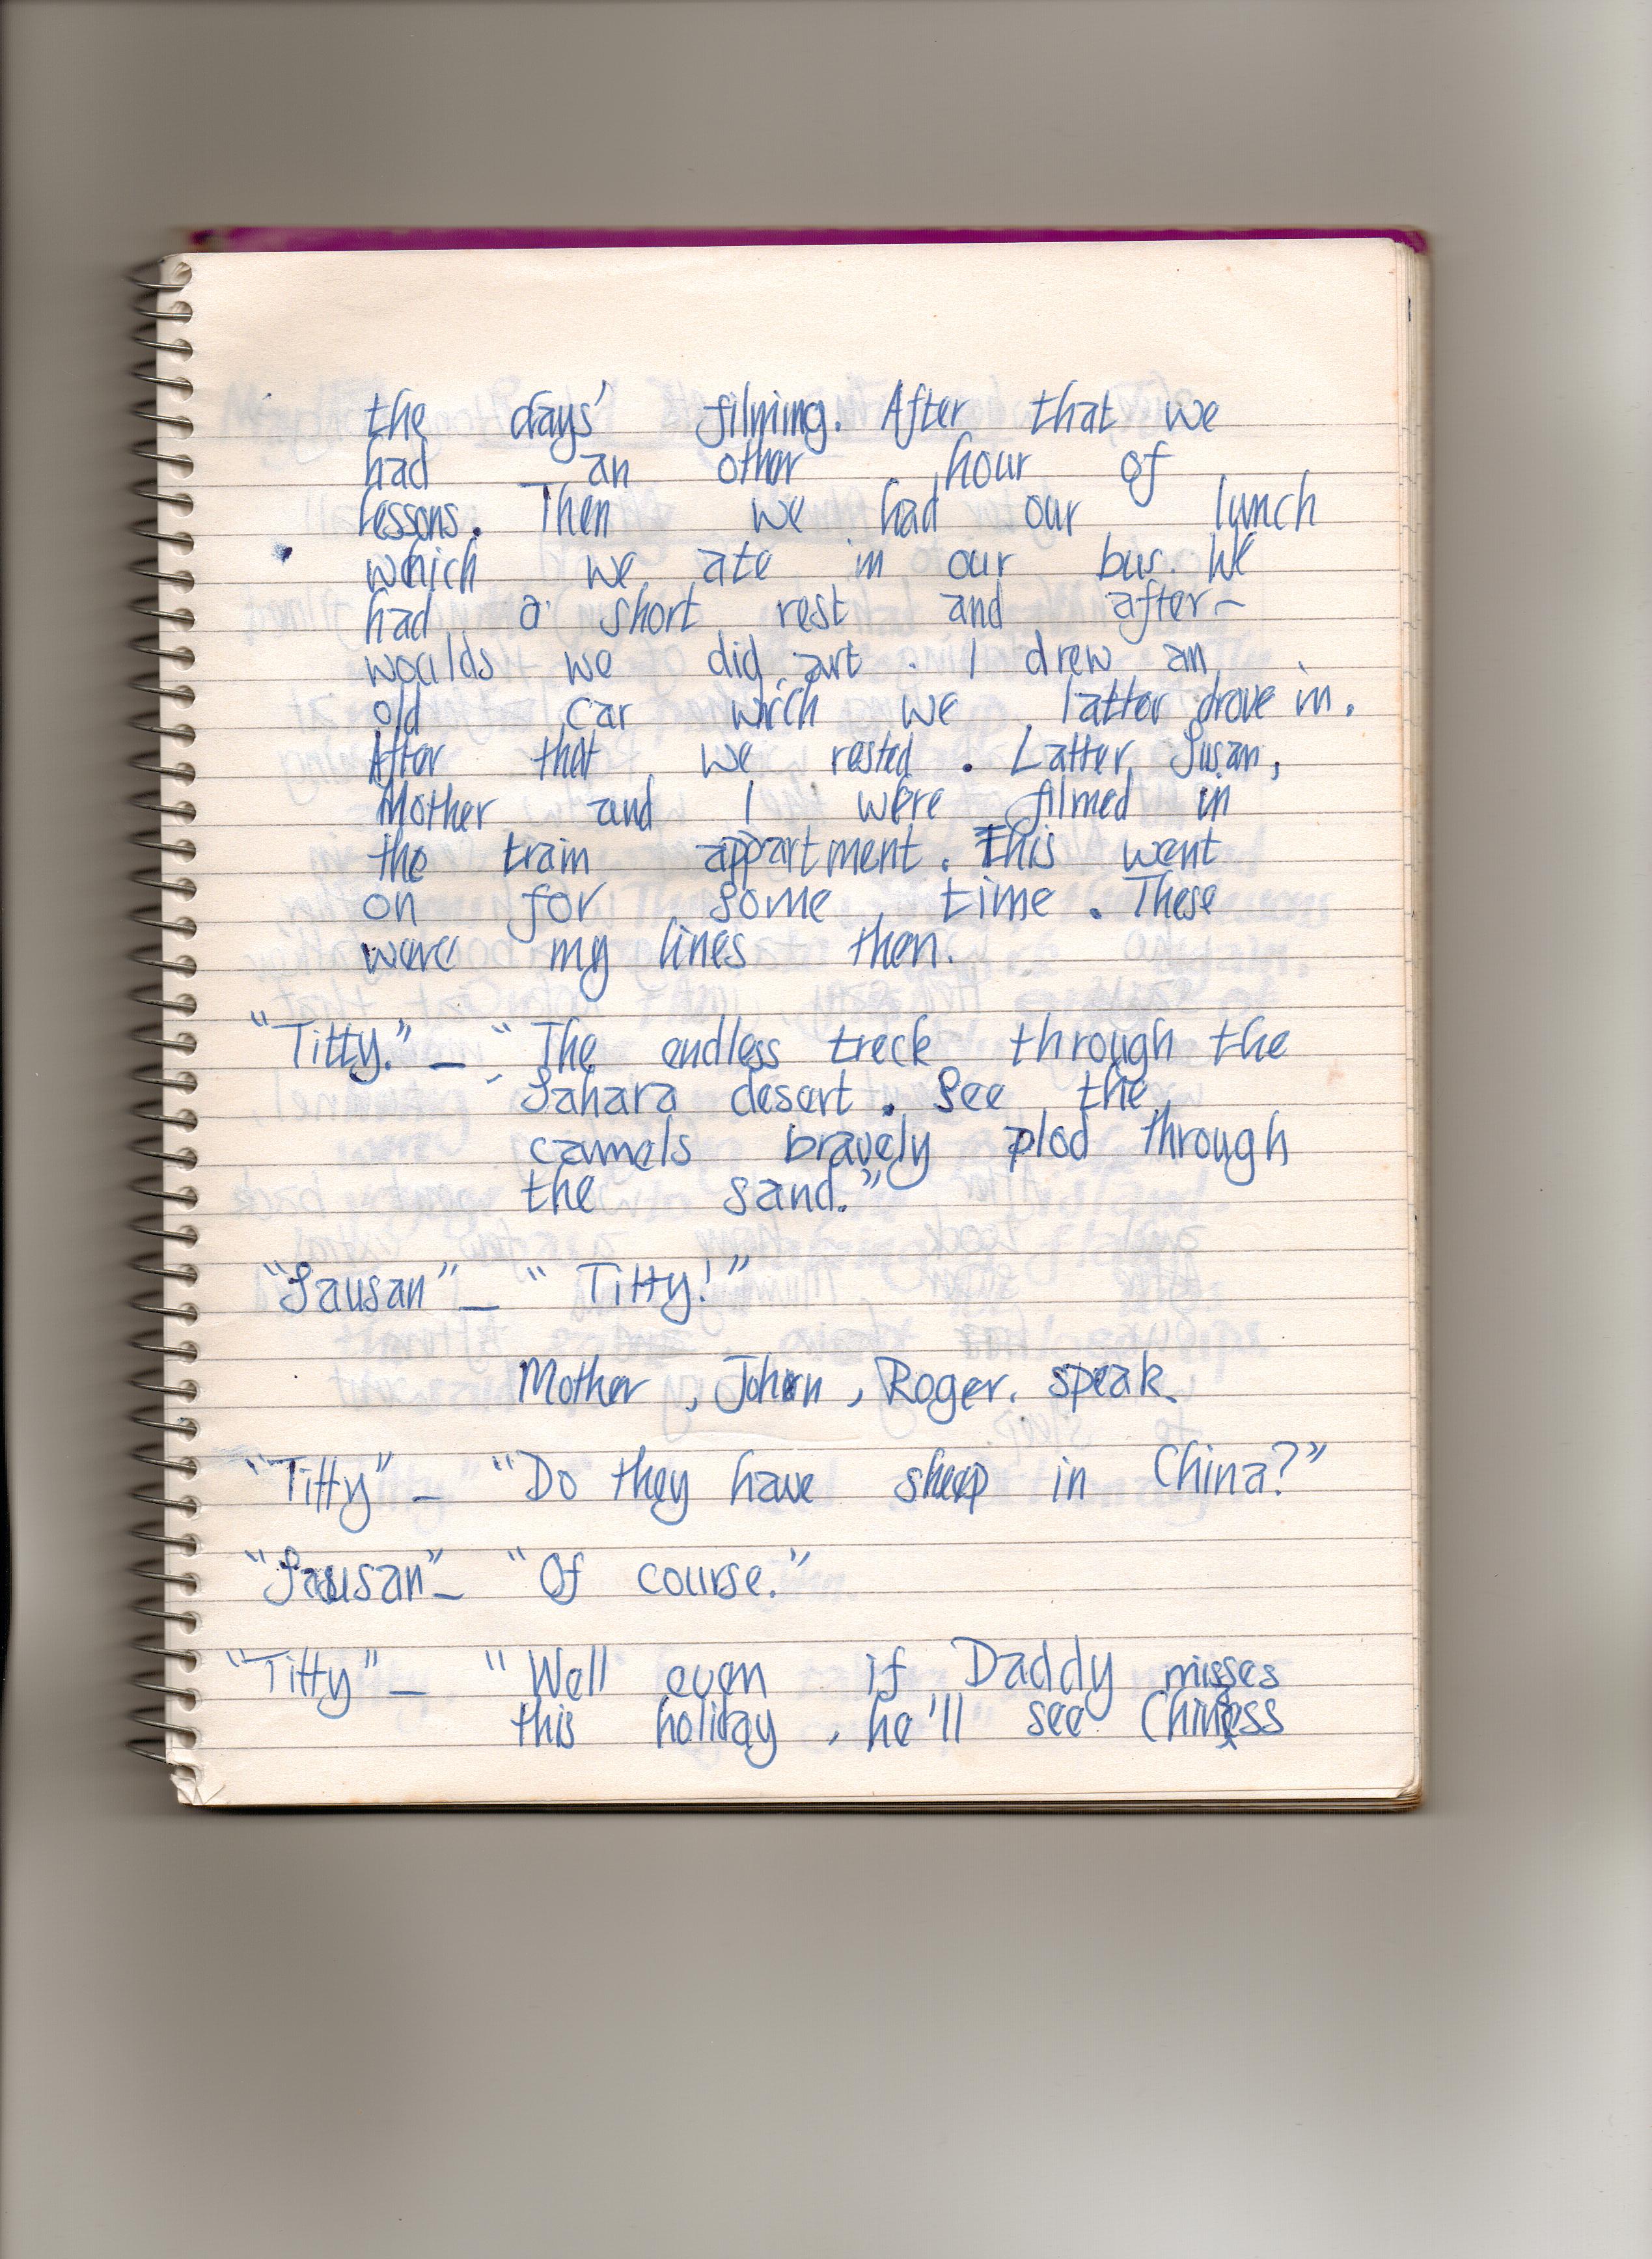 the days' filming. After that we
had an other hour of
lessons. Then we had our lunch
which we ate in our bus. We
had a short rest and after-
woulds we did art. I drew an
old car wich we latter drove in.
After that we rested. Latter Susan,
Mother and I were filmed in
the train appartment. This went
on for some time. These
were my lines then.
"Titty." – "The endless treck through the
Sahara desert. See the
cammels bravely plod through
the sand."
"Sausan" – "Titty!"
Mother, John, Roger. speak.
"Titty" – "Do they have sheep in China?"
"Sausan" – "Of course."
"Titty" – "Well even if Daddy misses
this holiday, he'll see Chiness